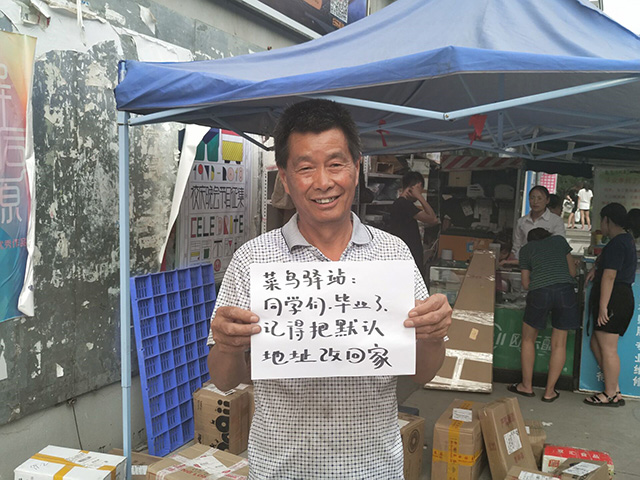 菜鸟驿站:
同学们.毕业了.
记得把默认
地址改回家
CELE